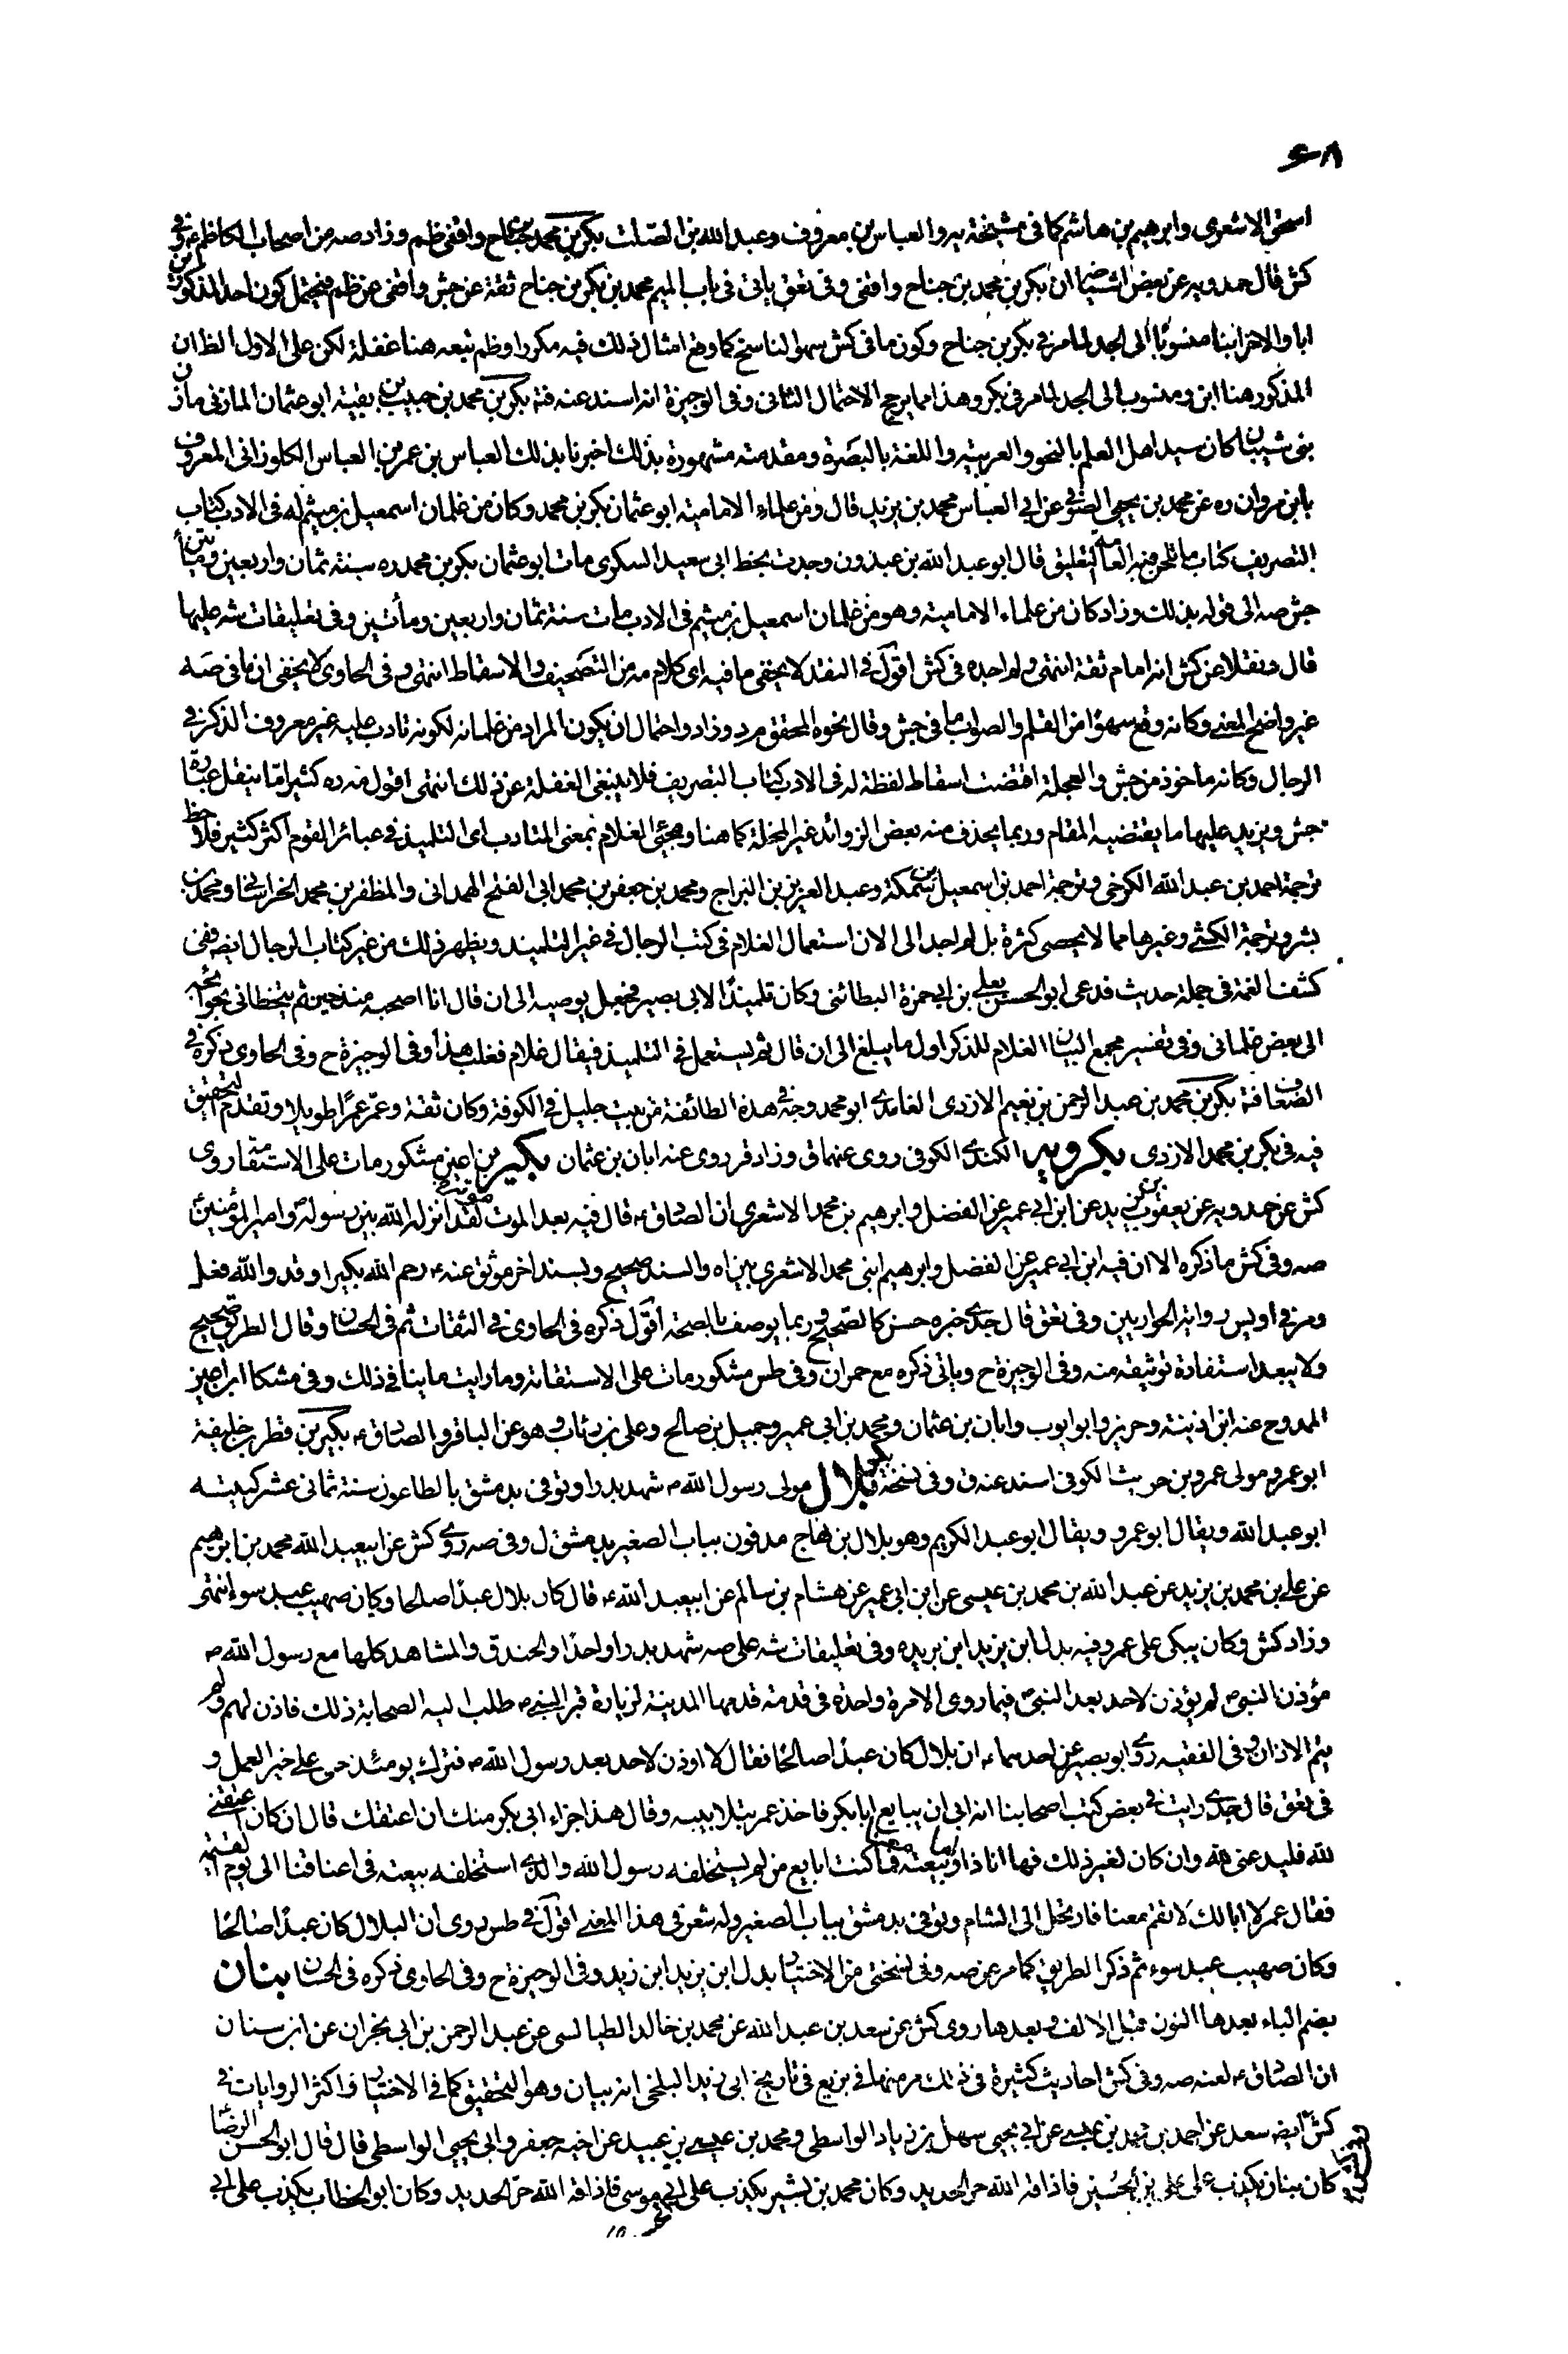 ٦٨
اسحق الاشعرى وابرهيم بن هاشم كما فى مشيخة يه والعباس بن معروف وعبد الله بن الصلت بكر بن محمد بن جناح واقفى ظم وزاد صه من اصحاب الكاظم ع وفى
كش قال حمدويه عن بعض اشياخه ان بكر بن محمد بن جناح واقفى وفى تعق ياتى فى باب الميم محمد بن بكر بن جناح ثقة عن جش واقفى عن ظم فيحتمل كون احد المذكورين
ابا والاخر ابنا منسوبا الى الجد لما مر فى بكر بن جناح وكون ما فى كش سهوا لناسخ كما وقع امثال ذلك فيه مكررا وظم تبعه هنا غفلة لكن على الاول الظ ان
المذكور هنا ابن ومنسوب الى الجد لما مر فى بكر وهذا مما يرجح الاحتمال الثانى وفى الوجيزة انه اسند عنه فتم بكر بن محمد بن حبيب بن بقية ابو عثمان المازنى مازن
بنى شيبان كان سيد اهل العلم بالنحو والعربية واللغة بالبصرة ومقدمته مشهورة بذلك اخبرنا بذلك العباس بن عمر بن العباس الكلوذانى المعروف
بابن مروان ره عن محمد بن يحيى الصولى عن ابى العباس محمد بن يزيد قال ومن علماء الامامية ابو عثمان بكر بن محمد وكان من غلمان اسمعيل بن ميثم له فى الادب كتاب
التصريف كتاب ما تلحن فيه العامة التعليق قال ابو عبد الله بن عبدون وجدت بخط ابى سعيد السكرى مات ابو عثمان بكر بن محمد ره سنة ثمان واربعين ومأتين
جش صه الى قوله بذلك وزاد كان من علماء الامامية وهو من غلمان اسمعيل بن ميثم فى الادب مات سنة ثمان واربعين ومأتين وفى تعليقات شه عليها
قال د نقلا عن كش انه امام ثقة انتهى ولم اجده فى كش اقول فى النقد لا يخفى ما فيه اى كلام صه من التصحيف والاسقاط انتهى وفى الحاوى لا يخفى ان ما فى صه
غير واضح المعنى وكانه وقع سهوا من القلم والصواب ما فى جش وقال نحوه المحقق مرد وزاد واحتمال ان يكون المراد من غلمانه لكونه تادب عليه غير معروف الذكر فى
الرجال وكانه ماخوذ من جش والعجلة اقتضت اسقاط لفظة له فى الادب كتاب التصريف فلا ينبغى الغفلة عن ذلك انتهى اقول صه ره كثيرا ما ينقل عبارة
جش ويزيد عليها ما يقتضيه المقام وربما يحذف منه بعض الزوائد غير المخلة كما هنا ومجئ الغلام بمعنى المتادب اى التلميذ فى عبائر القوم اكثر كثير فلاحظ
ترجمة احمد بن عبد الله الكرخى وترجمة احمد بن اسمعيل بن سمكة وعبد العزيز بن البراج ومحمد بن جعفر بن محمد ابى الفتح الهمدانى والمظفر بن محمد الخراسانى ومحمد بن
بشر وترجمة الكشى وغيرها مما لا يحصى كثرة بل لم اجد الى الان استعمال الغلام فى كتب الرجال فى غير التلميذ ويظهر ذلك من غير كتاب الرجال ايضه ففى
كشف الغمة فى جملة حديث فدعى ابو الحسن ع بعلى بن ابى حمزة البطائنى وكان تلميذا لابى بصير فجعل يوصيه الى ان قال انا اصحبه منذ حين ثم يتخطانى بحوائجه
الى بعض غلمانى وفى تفسير مجمع البيان الغلام للذكر اول ما يبلغ الى ان قال ثم يستعمل فى التلميذ فيقال غلام فغلب هذا وفى الوجيزة ح وفى الحاوى ذكره فى
الضعاف فتم بكر بن محمد بن عبد الرحمن بن نعيم الازدى الغامدى ابو محمد وجه فى هذه الطائفة من بيت جليل فى الكوفة وكان ثقة وعمر عمرا طويلا وتقدم التحقيق
فيه فى بكر بن محمد الازدى بكرويه الكندى الكوفى روى عنهما ق وزاد قر روى عنه ابان بن عثمان بكير بن اعين مشكور مات على الاستقامة روى
كش عن حمدويه عن يعقوب بن يزيد عن ابن ابى عمير عن الفضل وابرهيم بن محمد الاشعرى ان الصادق ع قال فيه بعد الموت لقد انزله الله بين رسوله ص وامير المؤمنين ع
صه وفى كش ما ذكره الا ان فيه ابن ابى عمير عن الفضل وابرهيم ابنى محمد الاشعريين اه والسند صحيح وبسند اخر موثق عنه ع رحم الله بكيرا وقد والله فعل
ومر فى اويس رواية الحواريين وفى تعق قال جدى خبره حسن كالصحيح وربما يوصف بالصحة اقول ذكره فى الحاوى فى الثقات ثم فى الحسان وقال الطريق صحيح
ولا يبعد استفادة توثيقه منه وفى الوجيزة ح وياتى ذكره مع حمران وفى طس مشكور مات على الاستقامة وما رايت ما ينافى ذلك وفى مشكا ابن اعين
الممدوح عنه ابن اذينة وحريز وابو ايوب وابان بن عثمان ومحمد بن ابى عمير وجميل بن صالح وعلى بن رئاب وهو عن الباقر والصادق ع بكير بن قطر بن خليفة
ابو عمرو مولى عمرو بن حريث الكوفى اسند عنه ق وفى نسخة بكر بلال مولى رسول الله ص شهد بدرا وتوفى بدمشق بالطاعون سنة ثمانى عشر كنيته
ابو عبد الله ويقال ابو عمرو ويقال ابو عبد الكريم وهو بلال بن رباح مدفون بباب الصغير بدمشق ل وفى صه روى كش عن ابيعبد الله محمد بن ابرهيم
عن على بن محمد بن يزيد عن عبد الله بن محمد بن عيسى عن ابن ابى عمير عن هشام بن سالم عن ابيعبد الله ع قال كان بلال عبدا صالحا وكان صهيب عبد سوء انتهى
وزاد كش وكان يبكى على عمر وفيه بدل ابن يزيد ابن بريده وفى تعليقات شه على صه شهد بدرا واحدا والخندق والمشاهد كلها مع رسول الله ص
مؤذن النبى ص لم يؤذن لاحد بعد النبى ص فيما روى الا مرة واحدة فى قدمة قدمها المدينة لزيارة قبر النبى ص طلب اليه الصحابة ذلك فاذن لهم ولم
يتم الاذان وفى الفقيه روى ابو بصير عن احدهما ع ان بلال كان عبدا صالحا فقال لا اوذن لاحد بعد رسول الله ص فترك يومئذ حى على خير العمل و
فى تعق قال جدى رايت فى بعض كتب اصحابنا انه ابى ان يبايع ابابكر فاخذ عمر بتلابيبه وقال هذا جزاء ابى بكر منك ان اعتقك قال ان كان اعتقنى
لله فليدعنى لله وان كان لغير ذلك فها انا ذا واما بيعته فما كنت ابايع من لم يستخلفه رسول الله والذى استخلفه بيعته فى اعناقنا الى يوم القيمة
فقال عمر لا ابا لك لا تقم معنا فارتحل الى الشام وتوفى بدمشق بباب الصغير وله شعر فى هذا المعنى اقول فى طس روى ان البلال كان عبدا صالحا
وكان صهيب عبد سوء ثم ذكر الطريق كما مر عن صه وفى نسختى من الاختيار بدل ابن يزيد ابن زيد وفى الوجيزة ح وفى الحاوى ذكره فى الحسان بنان
بضم الباء بعدها النون قبل الالف وبعدها روى كش عن سعد بن عبد الله عن محمد بن خالد الطيالسى عن عبد الرحمن بن ابى نجران عن ابن سنان
ان الصادق ع لعنه صه وفى كش احاديث كثيرة فى ذلك مر منها فى بزيع فى تاريخ ابى زيد البلخى انه بيان وهو التحقيق كما فى الاختيار واكثر الروايات فى
كش ايضه سعد عن احمد بن محمد بن عيسى عن ابى يحيى سهل بن زياد الواسطى ومحمد بن عيسى بن عبيد عن اخيه جعفر وابى يحيى الواسطى قال قال ابو الحسن الرضا ع
كان بنان يكذب على على بن الحسين فاذاقه الله حر الحديد وكان محمد بن بشير يكذب على ابى موسى فاذاقه الله حر الحديد وكان ابو الخطاب يكذب على ابى